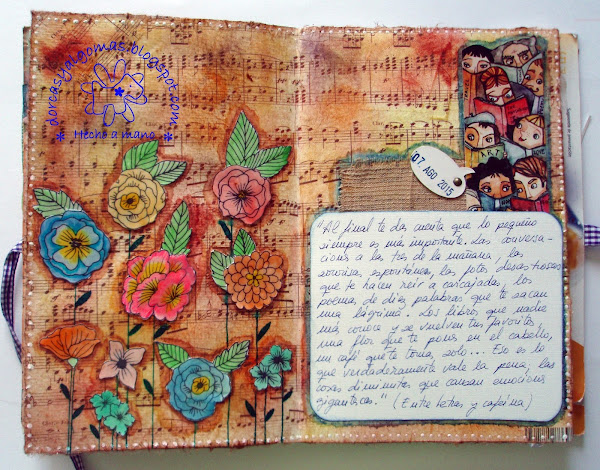 dorcasyjaigomas.blogspot.com
* Hecho a mano *
07 AGO 2015
ART
"Al final te das cuenta que lo pequeño
siempre es más importante. Las conversa-
ciones a las tres de la mañana, las
sonrisas espontáneas, las fotos desastrosas
que te hacen reir a carcajadas, los
poemas de diez palabras que te sacan
una lágrima. Los libros que nadie
más conoce y se vuelven tus favoritos,
una flor que te pones en el cabello,
un café que te tomas solo... Eso es lo
que verdaderamente vale la pena; las
cosas diminutas que causan emociones
gigantescas." (Entre letras y cafeína)